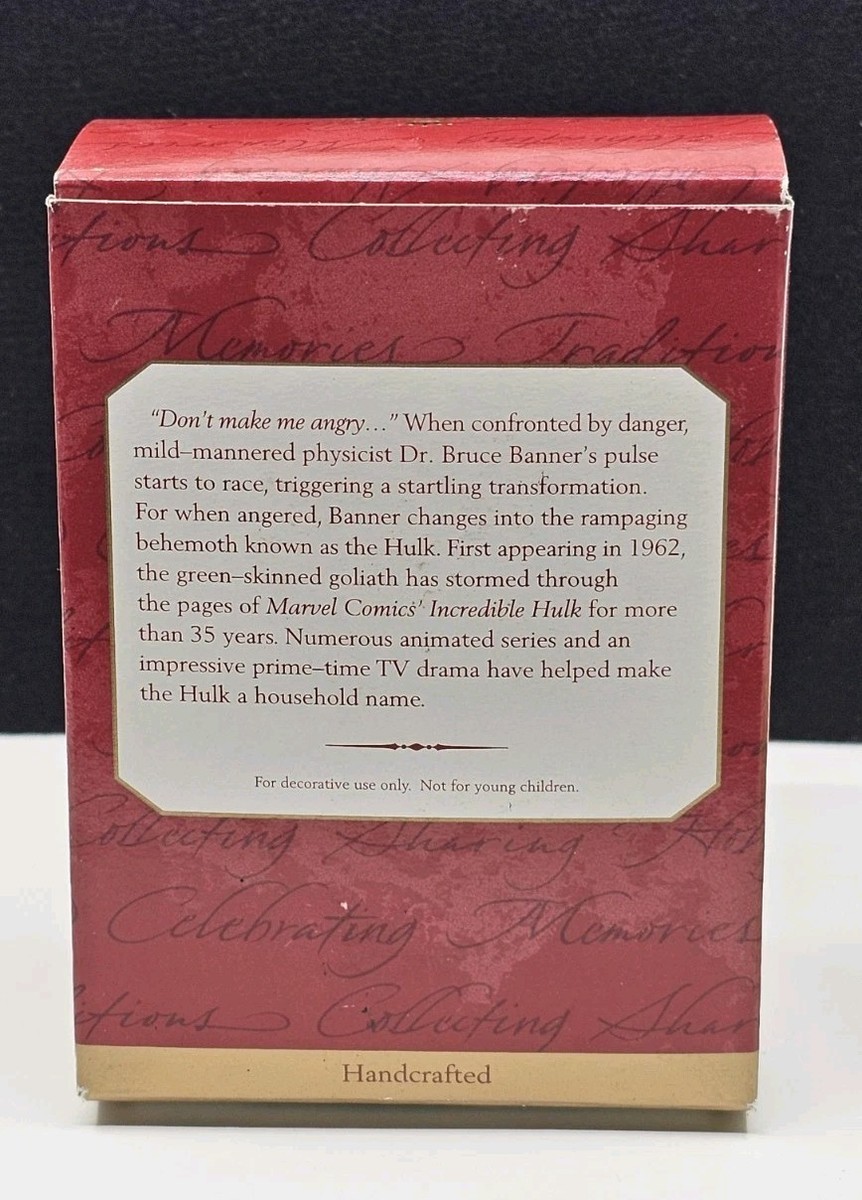 tions Collecting Shar
Memories Tradition
“Don’t make me angry...” When confronted by danger,
mild–mannered physicist Dr. Bruce Banner’s pulse
starts to race, triggering a startling transformation.
For when angered, Banner changes into the rampaging
behemoth known as the Hulk. First appearing in 1962,
the green–skinned goliath has stormed through
the pages of Marvel Comics’ Incredible Hulk for more
than 35 years. Numerous animated series and an
impressive prime–time TV drama have helped make
the Hulk a household name.
For decorative use only. Not for young children.
Collecting Sharing Hol
Celebrating Memories
itions Collecting Shar
Handcrafted